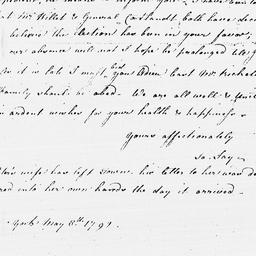 at Mr Willet & Genral Cortlandt, both have dec
believe the Election has been in your favor,
our absence will not I hope be prolonged
as it is late I must bid you Adieu least Mr Nichols
Family should be abed. We are all well & unite
in ardent wishes for your health & happiness.
Yours affectionately
Sa. Jay
wife has left town. his letter to her was de
red into her own hands the day it arrived
York May 8th 179